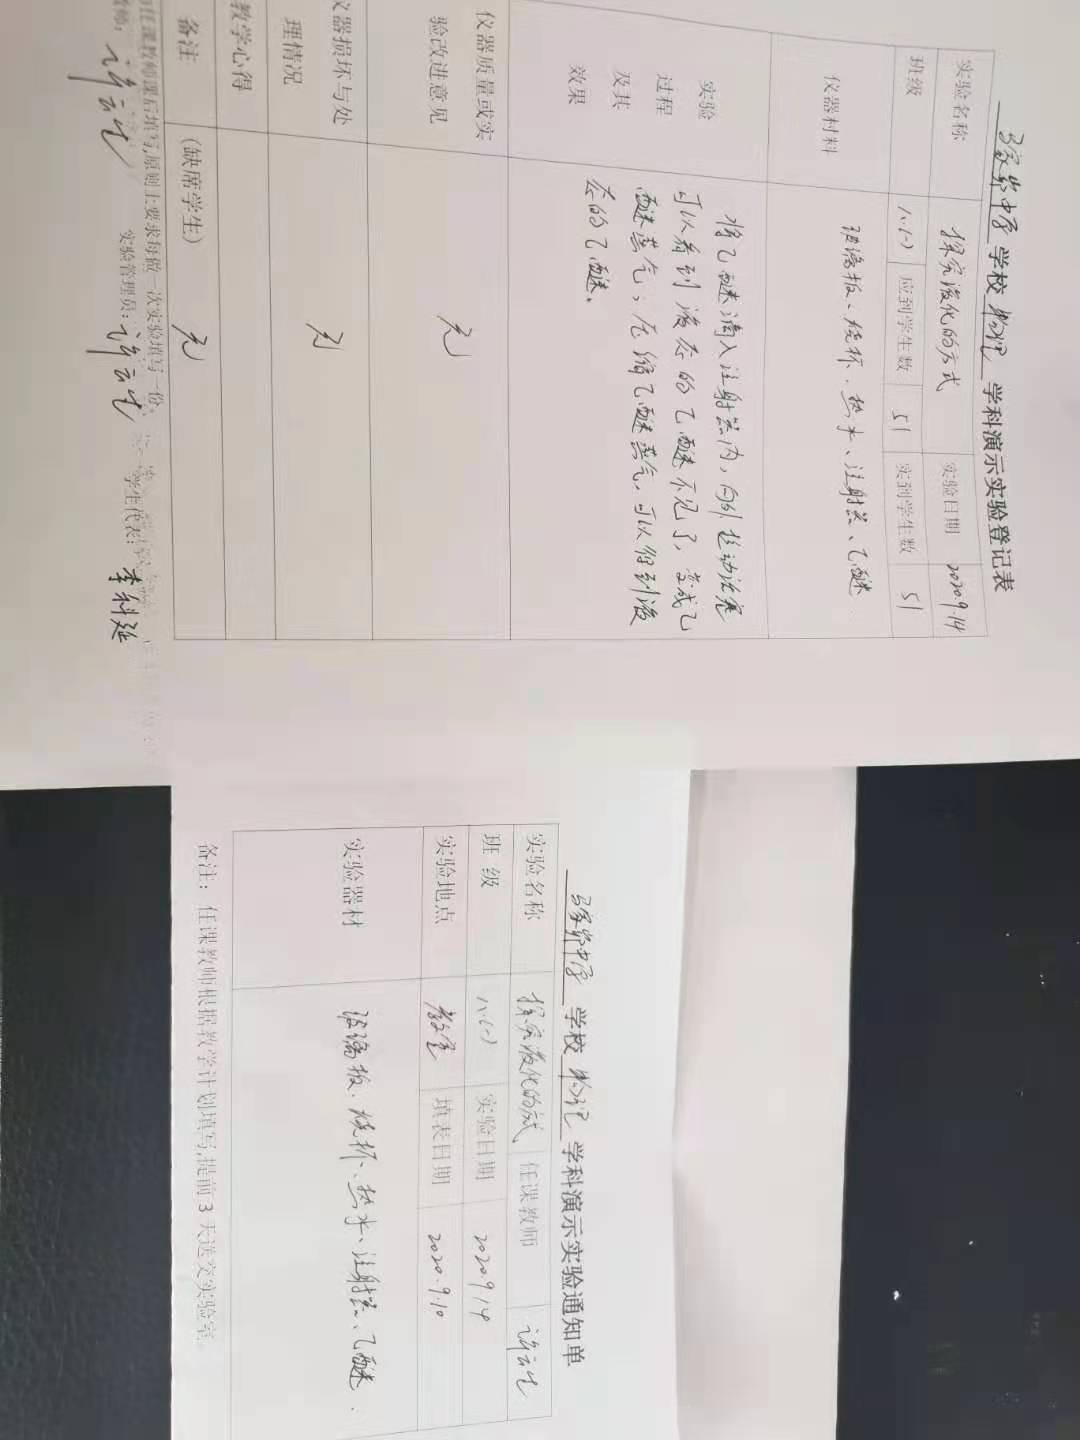 马家岸中学 学校 物理 学科演示实验登记表
实验名称 探究液化的方式 实验日期 2020.9.14
班级 八(一) 应到学生数 51 实到学生数 51
仪器材料 玻璃板、烧杯、热水、注射器、乙醚
实验
过程
及其
效果
将乙醚滴入注射器内,向外拉动活塞
可以看到液态的乙醚不见了,变成乙
醚蒸气,压缩乙醚蒸气,可以得到液
态的乙醚。
仪器质量或实
验改进意见
无
仪器损坏与处
理情况
无
教学心得
备注 (缺席学生) 无
任课教师课后填写,原则上要求每做一次实验填写一份。
教师: 实验管理员: 学生代表: 李科延
马家岸中学 学校 物理 学科演示实验通知单
实验名称 探究液化的方式 任课教师
班 级 八(一) 实验日期 2020.9.14
实验地点 教室 填表日期 2020.9.10
实验器材 玻璃板、烧杯、热水、注射器、乙醚.
备注: 任课教师根据教学计划填写,提前3天送交实验室。